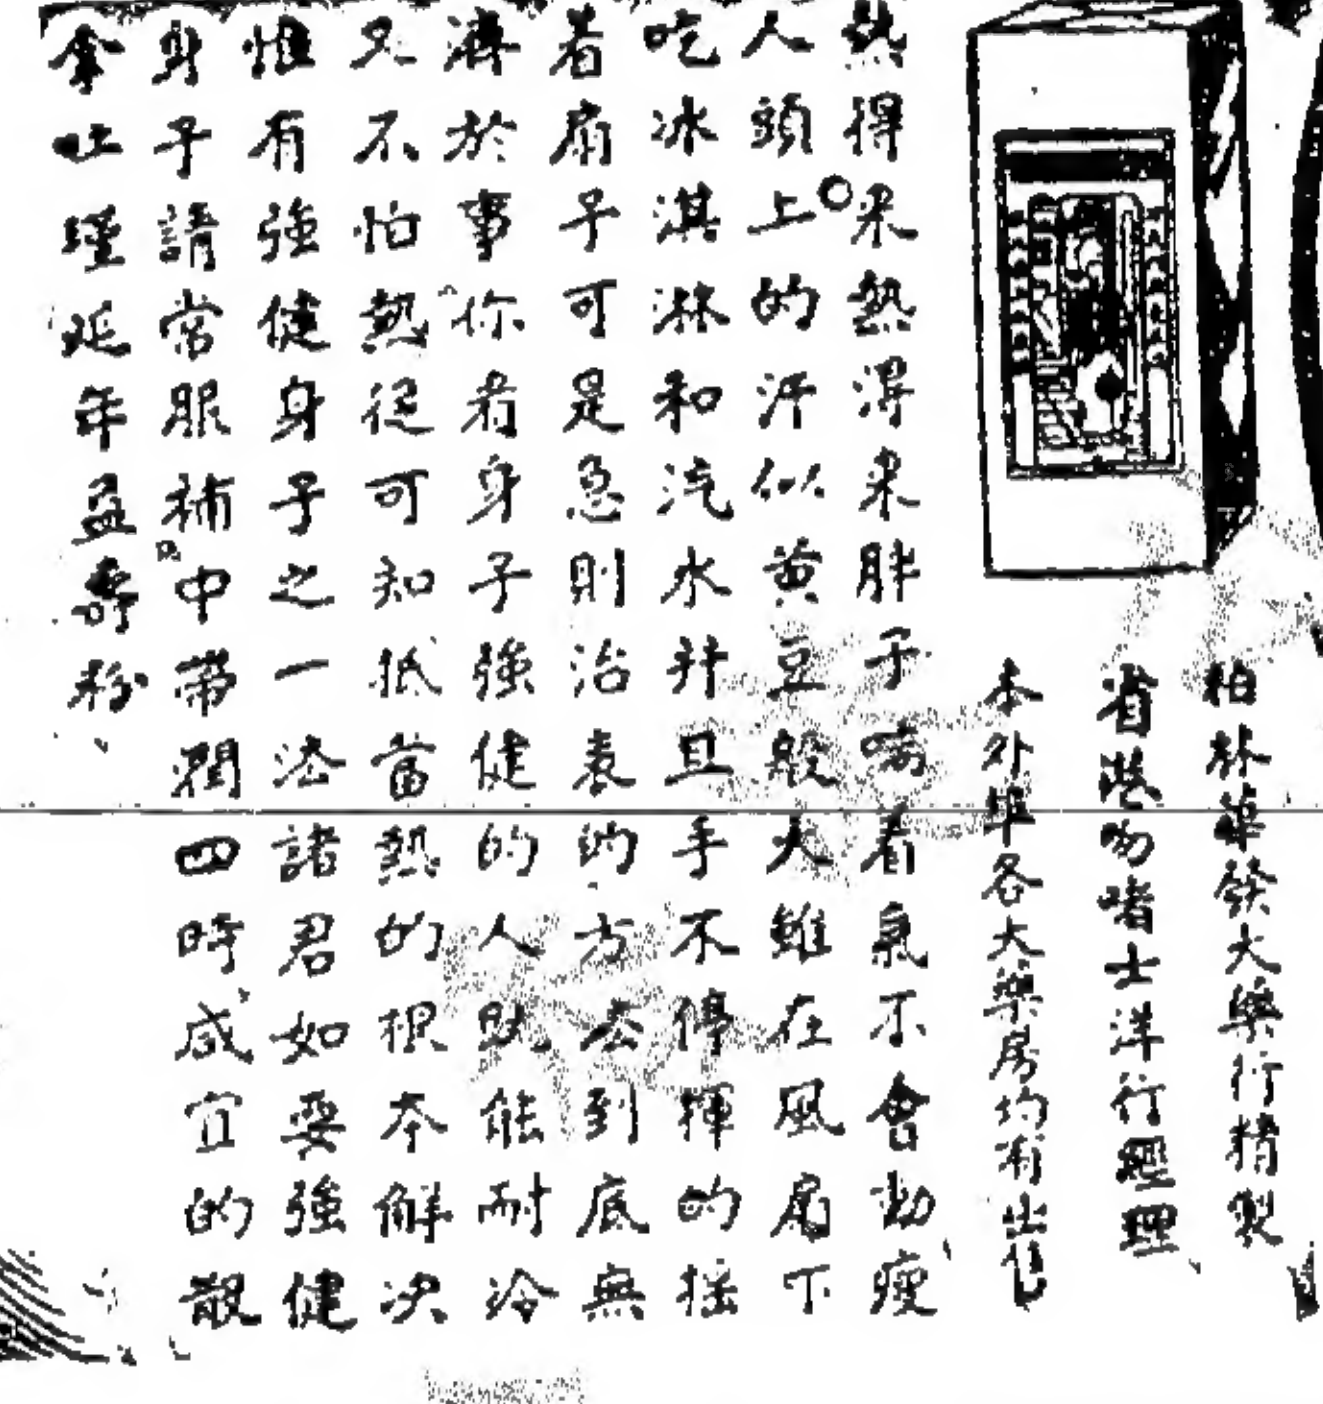 柏林華發大藥行精製
省港吻啫士洋行經理
本外埠各大藥房均有出售
熱得來熱得來胖子喘着氣不會動瘦
人頭上的汗似黃豆般大雖在風扇下
吃冰淇淋和汽水并且手不停揮的搖
着扇子可是急則治表的方法到底無
濟於事你看身子強健的人既能耐冷
又不怕熱從可知抵當熱的根本解決
惟有強健身子之一法諸君如要強健
身子請常服補中帶潤四時咸宜的散
拿吐瑾延年益壽粉